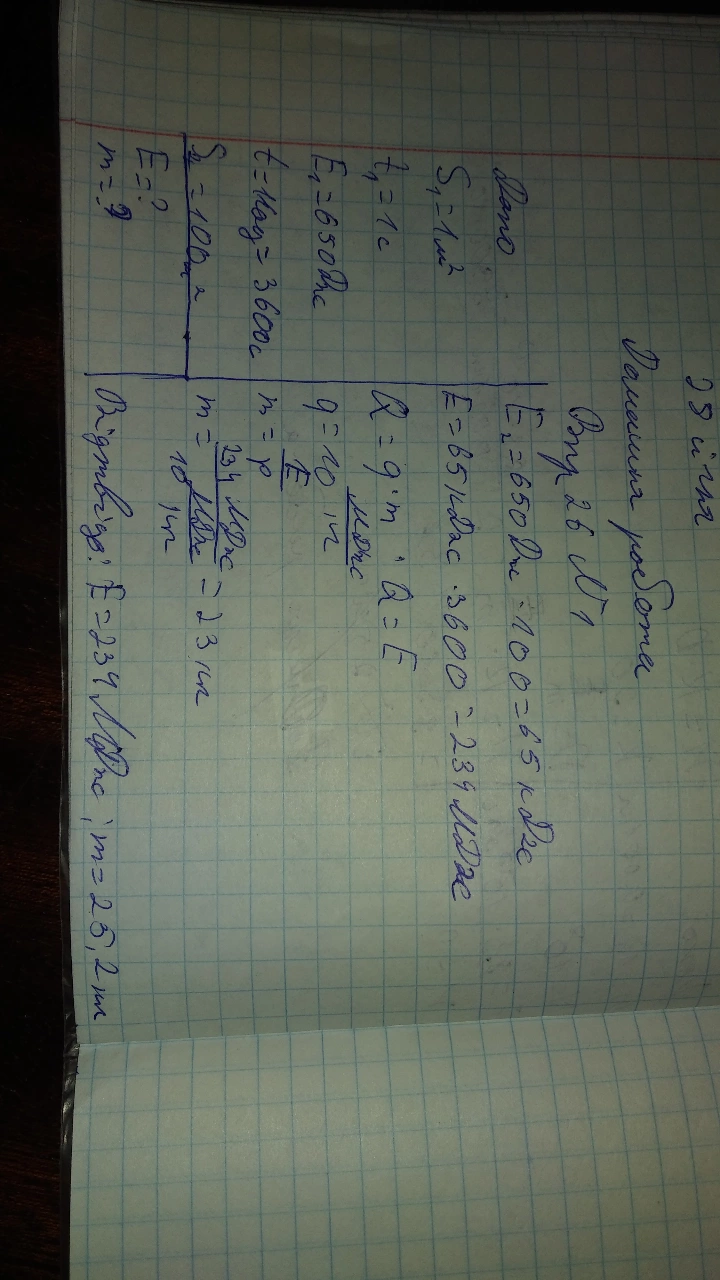 29 січня
Домашня робота
Впр 26 №1
Дано
S₁ = 1м²
t₁ = 1с
E₁ = 650Дж
t = 1год = 3600с
S₂ = 100м²
E = ?
m = ?
E₂ = 650Дж · 100 = 65 кДж
E = 65 кДж · 3600 = 234 МДж
Q = q · m · Q = E
q = 10 МДж/кг
m = E/p
m = 234 МДж / 10 МДж/кг = 23 кг
Відповідь: E = 234 МДж ; m = 25,2 кг